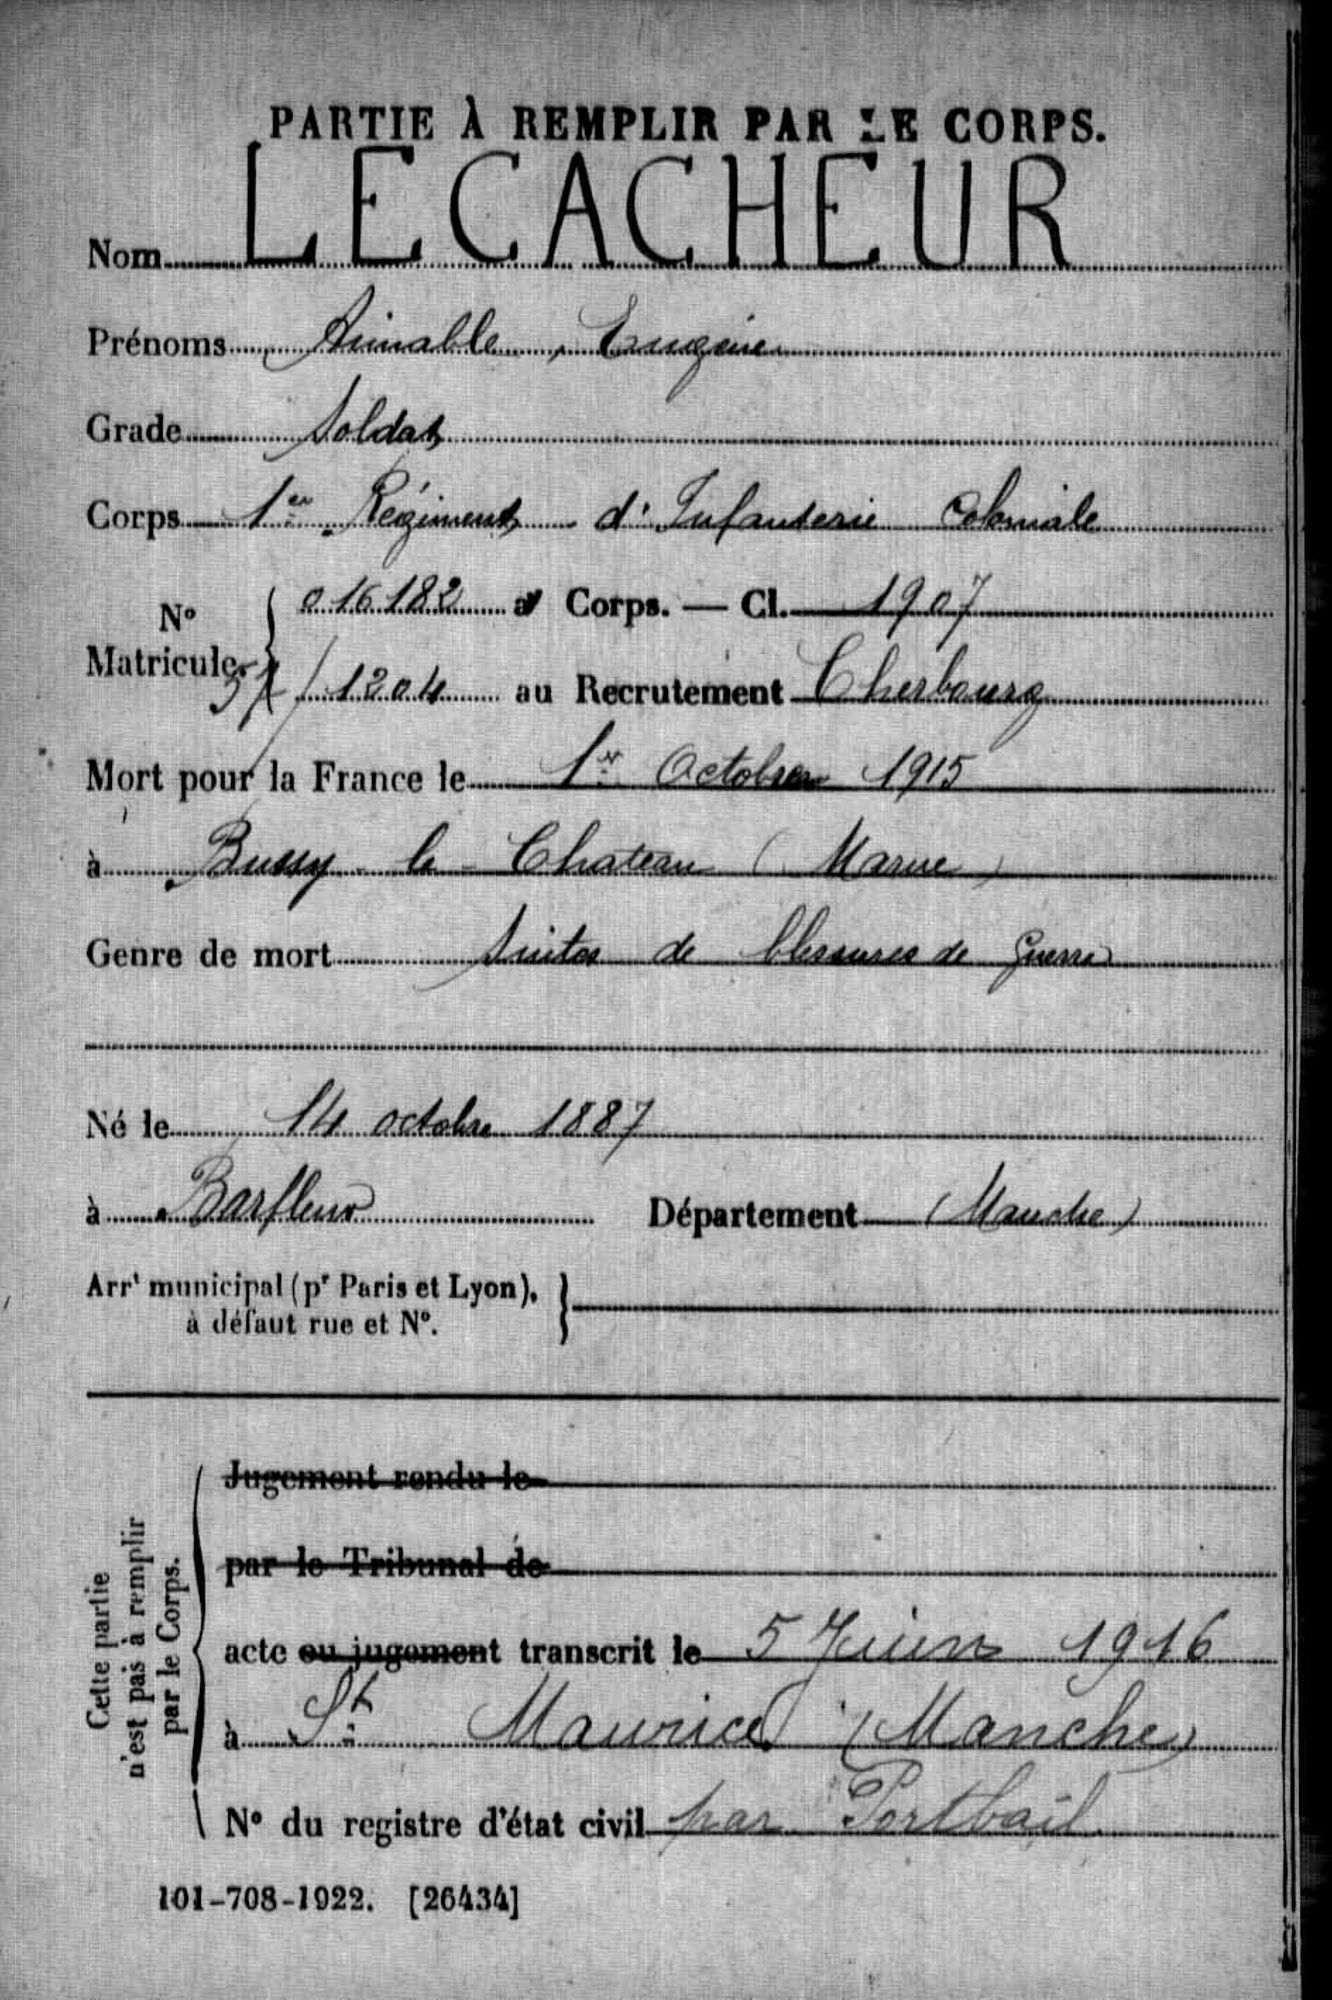 PARTIE À REMPLIR PAR LE CORPS.
Nom LECACHEUR
Prénoms Aimable, Eugène
Grade Soldat
Corps 1er Régiment d'Infanterie Coloniale
No Matricule. { 016182 au Corps. — Cl. 1907
1204 au Recrutement Cherbourg
Mort pour la France le 1er Octobre 1915
à Bussy-le-Chateau (Marne)
Genre de mort Suites de blessures de Guerre
Né le 14 octobre 1887
à Barfleur Département (Manche)
Arrt municipal (pr Paris et Lyon), }
à défaut rue et No.
Cette partie
n'est pas à remplir
par le Corps.
Jugement rendu le
par le Tribunal de
acte ou jugement transcrit le 5 Juin 1916
à St Maurice (Manche)
No du registre d'état civil par Portbail
101-708-1922. [26434]